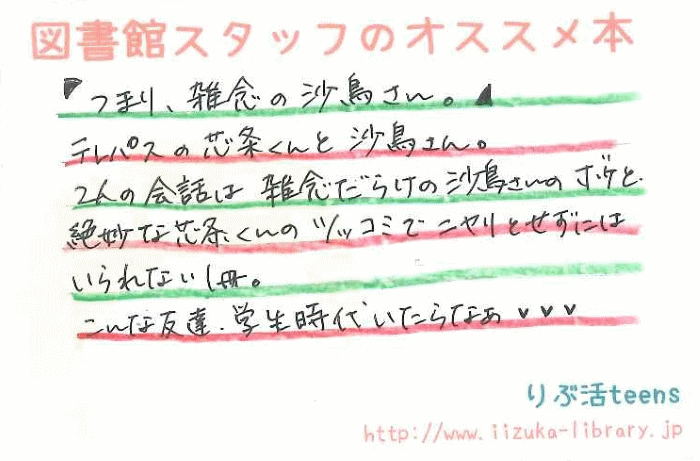 図書館スタッフのオススメ本
〝つまり、雑念の沙鳥さん。〟
テレパスの芯条くんと沙鳥さん。
2人の会話は雑念だらけの沙鳥さんのボケと
絶妙な芯条くんのツッコミでニヤリとせずには
いられない1冊。
こんな友達、学生時代いたらなぁ♥♥♥
りぶ活teens
http://www.iizuka-library.jp